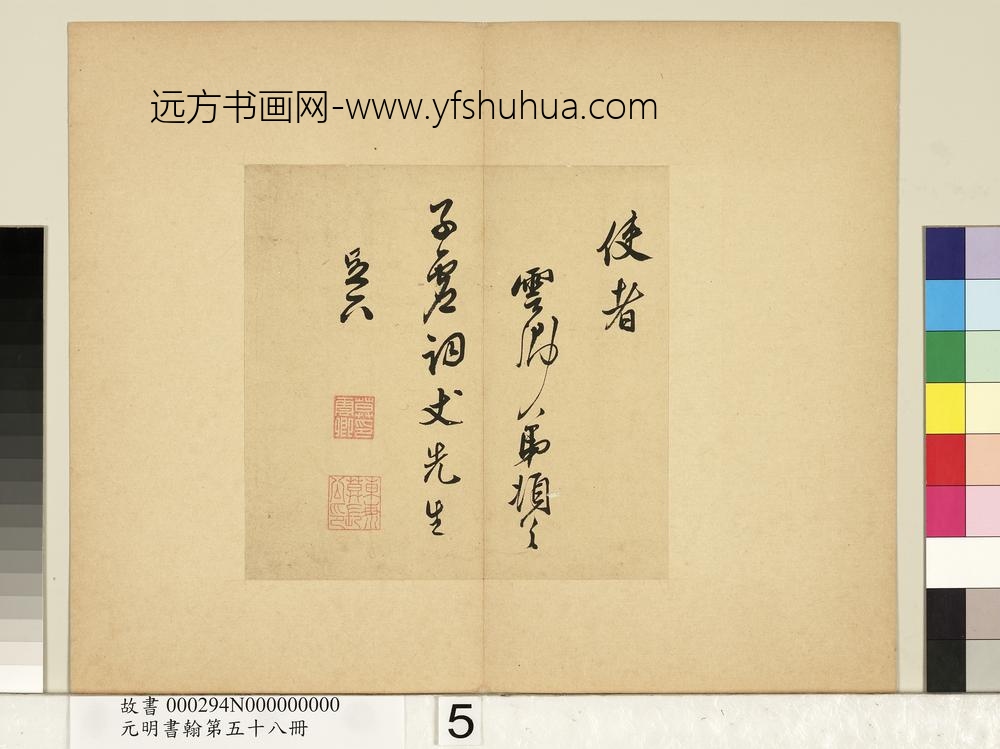 远方书画网-www.yfshuhua.com
使者
雲卿小弟頓首
子虛詞丈先生
莫印雲卿
故書 000294N000000000
元明書翰第五十八冊
5